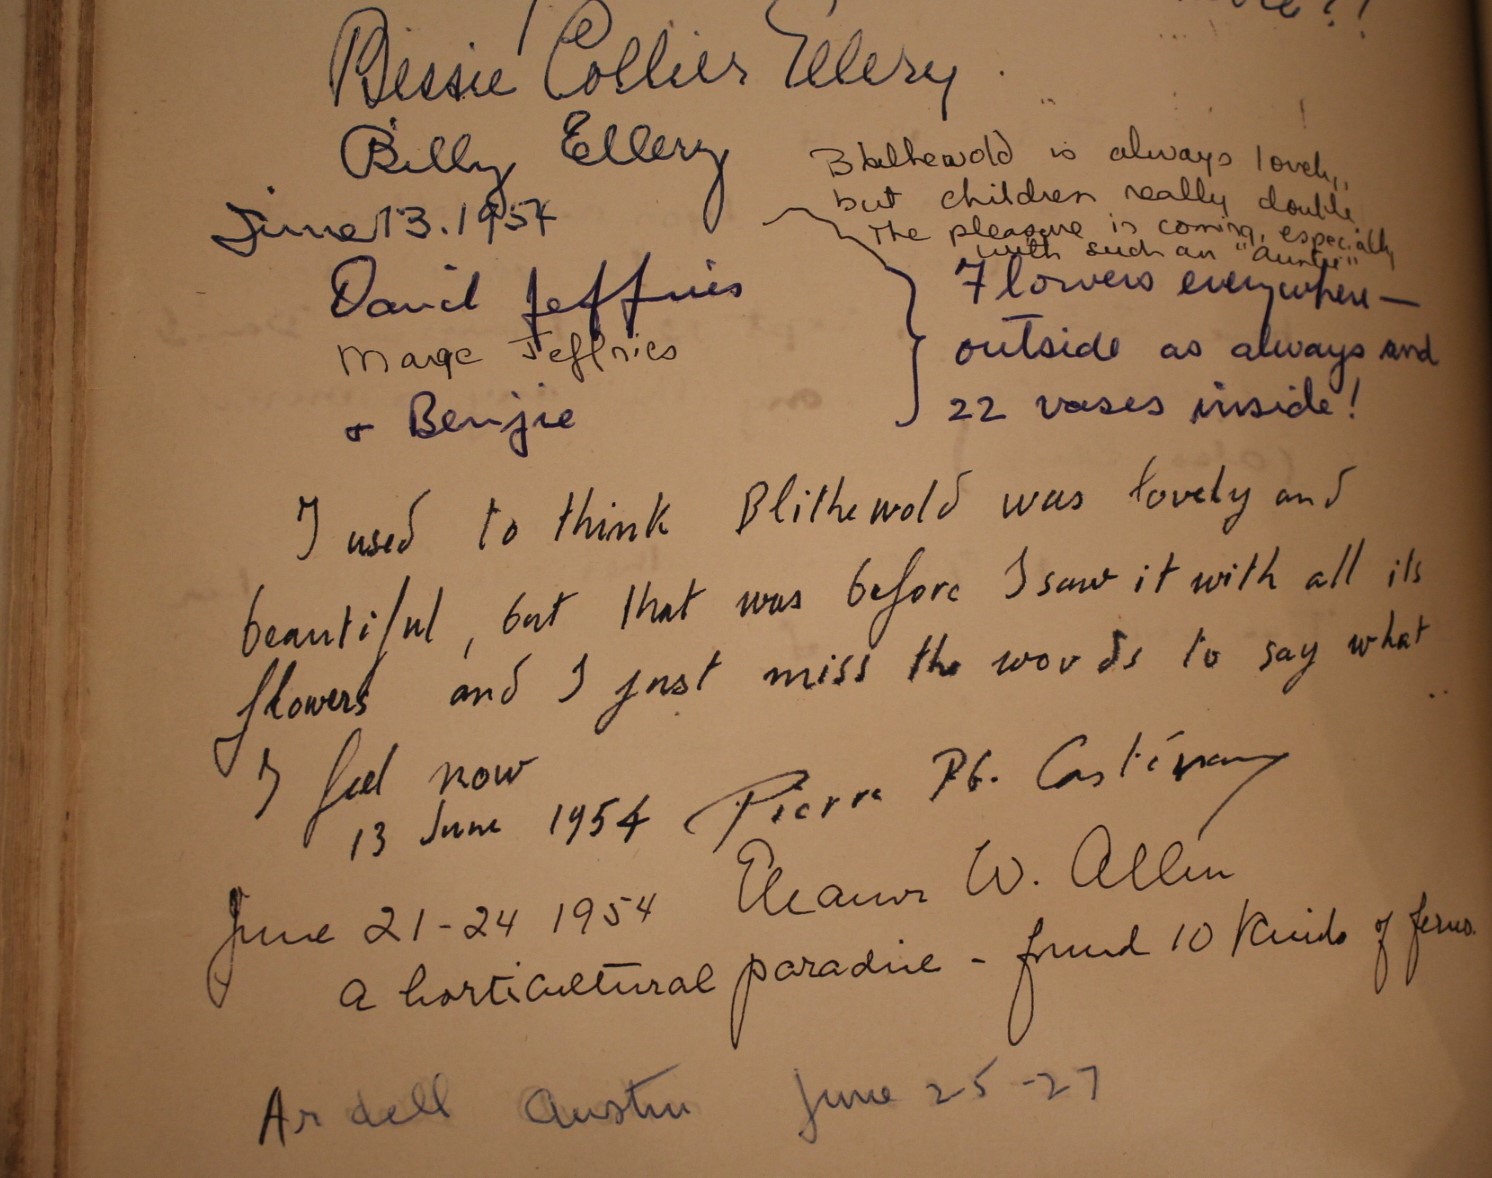 Bessie Collier Ellery.
Billy Ellery
June 13. 1954
Blithewold is always lovely,
but children really double
the pleasure is coming, especially
with such an "auntie"
David Jeffries
Marge Jeffries
+ Benjie
Flowers everywhere —
outside as always and
22 vases inside!
I used to think Blithewold was lovely and
beautiful, but that was before I saw it with all its
flowers and I just miss the words to say what
I feel now
13 June 1954 Pierre
June 21-24 1954 Eleanor W. Allen
a horticultural paradise - found 10 kinds of ferns.
Ardell Austin June 25-27